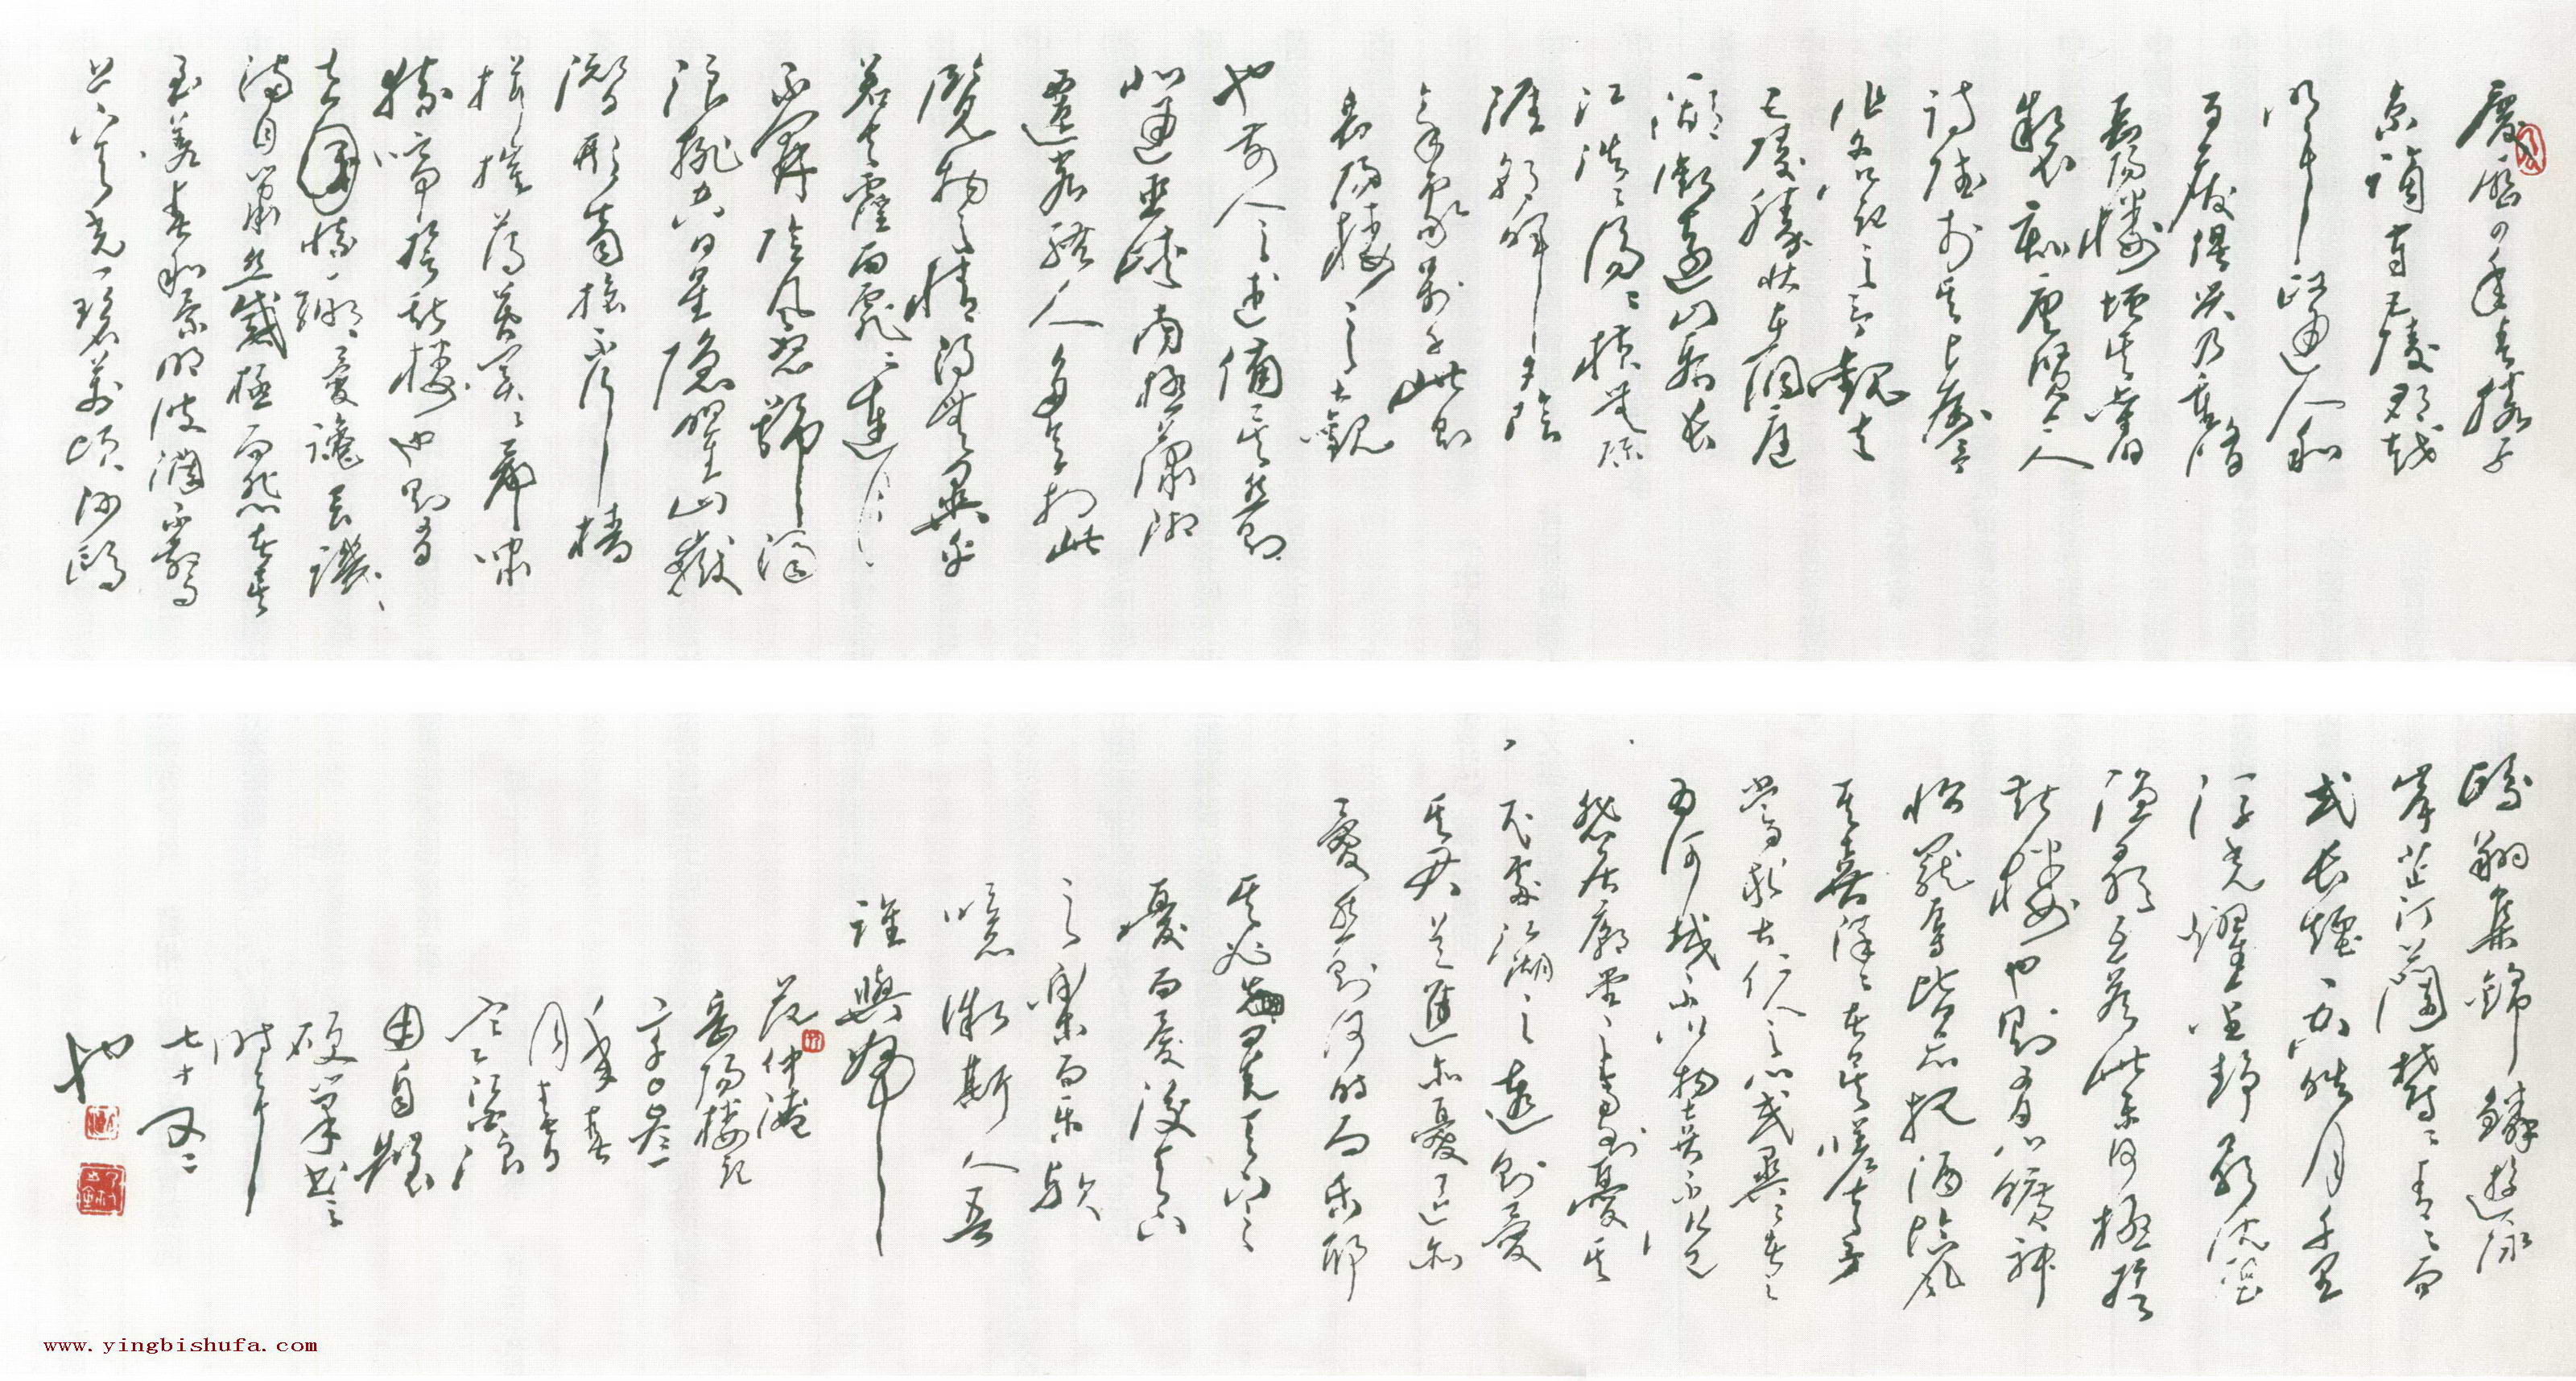 慶歷四年春滕子
京謫守巴陵郡越
明年政通人和
百廢俱興乃重修
岳陽樓增其舊
製刻唐賢今人
詩賦於其上屬予
作文以記之予觀夫
巴陵勝狀在洞庭
湖銜遠山吞長
江浩浩湯湯橫無際
涯朝暉夕陰
氣象萬千此則
岳陽樓之大觀
也前人之述備矣然則
北通巫峽南極瀟湘
遷客騷人多會於此
覽物之情得無異乎
若夫霪雨霏霏連月
不開陰風怒號濁
浪排空日星隱曜山嶽
潛形商旅不行檣
傾楫摧薄暮冥冥虎嘯
猿啼登斯樓也則有
去國懷鄉憂讒畏譏
滿目蕭然感極而悲者矣
至若春和景明波瀾不驚
上下天光一碧萬頃沙鷗
鷗翔集錦鱗游泳
岸芷汀蘭鬱鬱青青而
或長煙一空皓月千里
浮光耀金靜影沉璧
漁歌互答此樂何極登
斯樓也則有心曠神
怡寵辱皆忘把酒臨風
其喜洋洋者矣嗟夫予
嘗求古仁人之心或異二者之
為何哉不以物喜不以己
悲居廟堂之高則憂其
民處江湖之遠則憂
其君是進亦憂退亦
憂然則何時而樂耶
其必曰先天下之
憂而憂後天下
之樂而樂歟
噫微斯人吾
誰與歸
范仲淹
岳陽樓記
年春
月書
田自
硬筆書之
時年
七十又二
也
www.yingbishufa.com